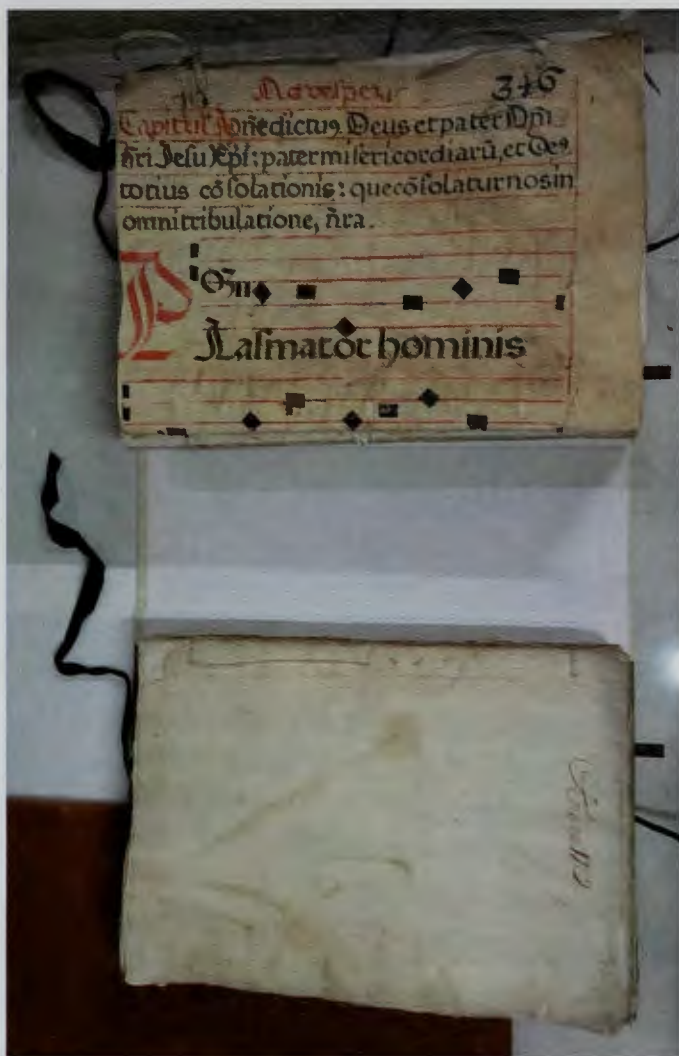 Ad vesperas 346
Capitul' Bñedictus Deus et pater Dñi
ñri Jesu Xp̄i: pater misericordiarũ, et De9
totius cõsolationis: que cõsolatur nos in
omni tribulatione, ñra.
P
Lasmator hominis